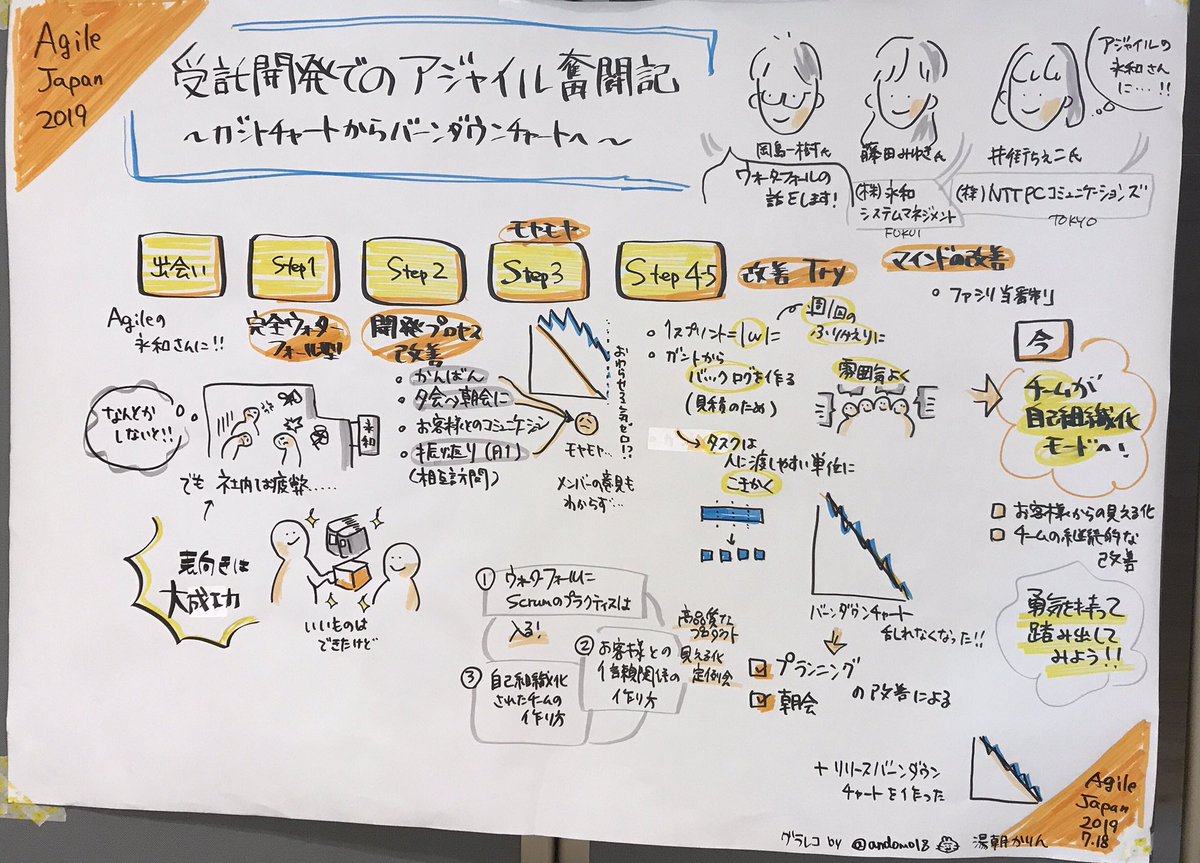 Agile
Japan
2019
受託開発でのアジャイル奮闘記
～ガントチャートからバーンダウンチャートへ～
アジャイルの
永和さん
に…!!
岡島一樹氏
藤田みゆきさん
ウォーターフォールの
話をします!
(株)永和
システムマネジメント
FUKUI
(株)NTTPCコミュニケーションズ
TOKYO
出会い
Agileの
永和さんに!!
なんとか
しないと!!
永和
でも 社内は疲弊.....
表向きは
大成功
いいものは
できたけど
Step1
完全ウォーター
フォール型
Step2
開発プロセス
改善
かんばん
夕会→朝会に
お客様とのコミュニケーション
振り返り(月1)
(相互訪問)
モヤモヤ
Step3
おわらせる気ゼロ!?
モヤモヤ…
メンバーの意見も
わからず…
Step 4-5
1スプリント=1w
ガントから
バックログを作る
(見積のため)
タスクは
人に渡しやすい単位に
こまかく
改善 Try
週1回の
ふりかえりに
雰囲気よく
マインドの改善
ファシリ当番制
バーンダウンチャート
乱れなくなった!!
プランニング
朝会
の改善による
+リリースバーンダウン
チャートを作った
① ウォーターフォールに
Scrumのプラクティスは
入る!
② お客様との
信頼関係の
作り方
高品質な
プロダクト
見える化
定例会
③ 自己組織化
されたチームの
作り方
今
チームが
自己組織化
モードへ!
お客様からの見える化
チームの継続的な
改善
勇気を持って
踏み出して
みよう!!
Agile
Japan
2019
7.18
グラレコ by @andomo18 湯朝かりん